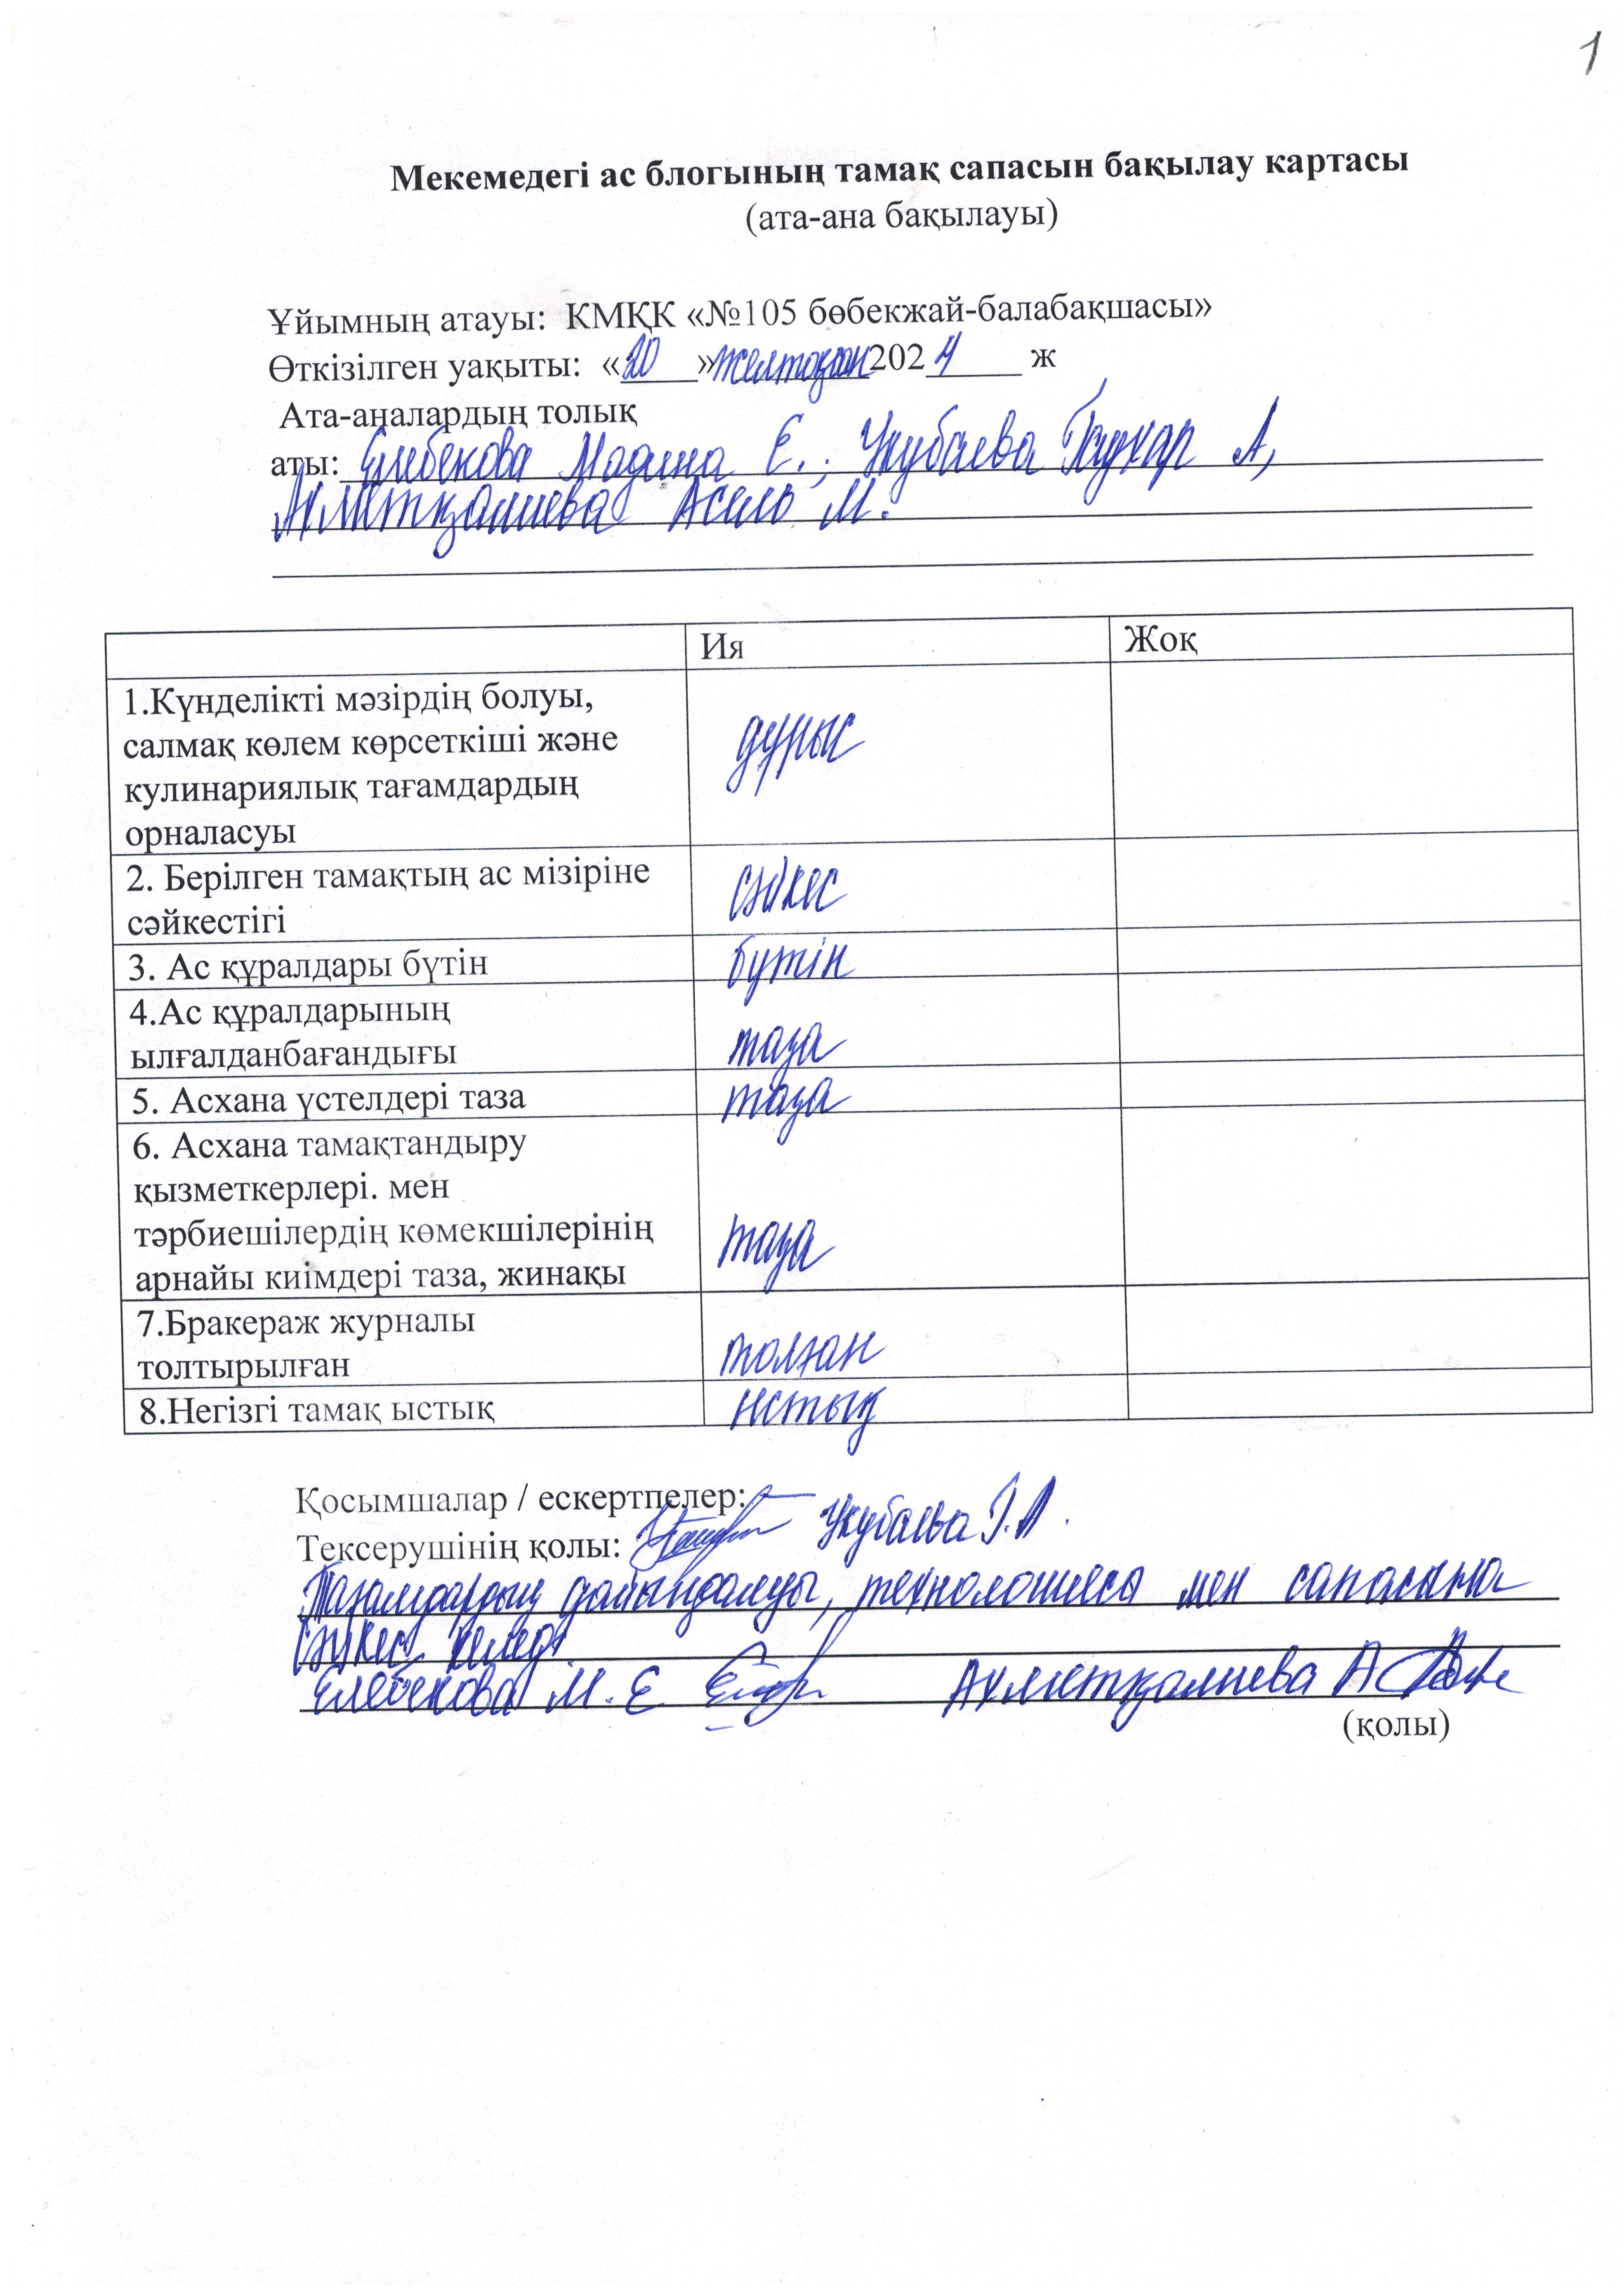 1
Мекемедегі ас блогының тамақ сапасын бақылау картасы
(ата-ана бақылауы)
Ұйымның атауы: КМҚК «№105 бөбекжай-балабақшасы»
Өткізілген уақыты: «20» желтоқсан 2024 ж
Ата-аналардың толық
аты: Елебекова Мадина Е., Укубаева Гаухар А,
Ахметқалиева Асель М.
Ия Жоқ
1.Күнделікті мәзірдің болуы,
салмақ көлем көрсеткіші және
кулинариялық тағамдардың
орналасуы
дұрыс
2. Берілген тамақтың ас мізіріне
сәйкестігі
сәйкес
3. Ас құралдары бүтін бүтін
4.Ас құралдарының
ылғалданбағандығы
таза
5. Асхана үстелдері таза таза
6. Асхана тамақтандыру
қызметкерлері. мен
тәрбиешілердің көмекшілерінің
арнайы киімдері таза, жинақы
таза
7.Бракераж журналы
толтырылған
толған
8.Негізгі тамақ ыстық ыстық
Қосымшалар / ескертпелер:
Тексерушінің қолы: Укубаева Г.А.
Тағамдардың дайындалуы, технологиясы мен сапасына
сәйкес келеді.
Елебекова М.Е Ахметқалиева А
(қолы)